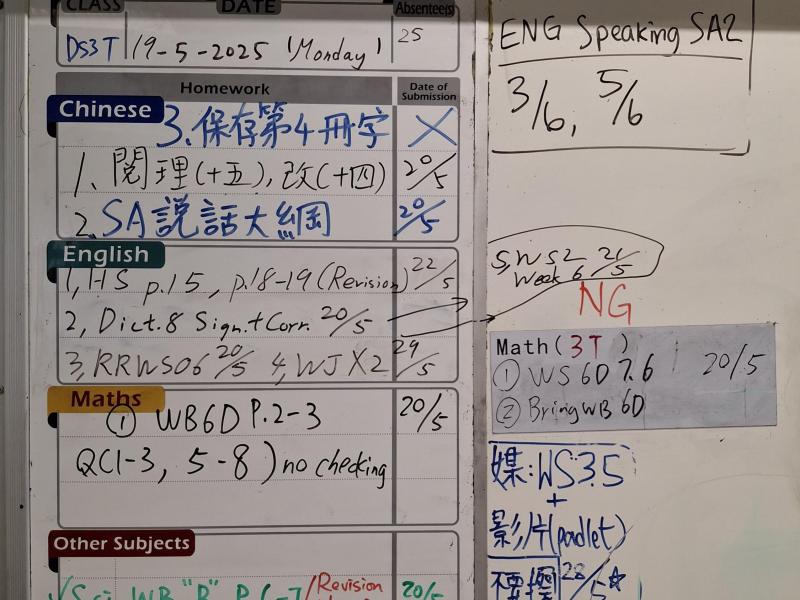 CLASS DATE Absentee(s)
DS3T 19-5-2025 'Monday' 25
Homework Date of Submission
Chinese
3. 保存第4冊字 X
1、閱理(十五), 改(十四) 20/5
2. SA說話大綱 20/5
English
1, HS p.15, p.18-19 (Revision) 22/5
2, Dict.8 Sign.+Corr. 20/5
3, RRWS06 20/5 4, WJX2 29/5
Maths
① WB6D P.2-3 20/5
Q(1-3, 5-8) no checking
Other Subjects
WB "B" P.6-7/Revision 20/5
ENG Speaking SA2
3/6, 5/6
5, WS2 21/5
Week 6
NG
Math (3T)
① WS 6D 7.6 20/5
② Bring WB 6D
媒:WS3.5
+
影片(padlet)
28/5☆